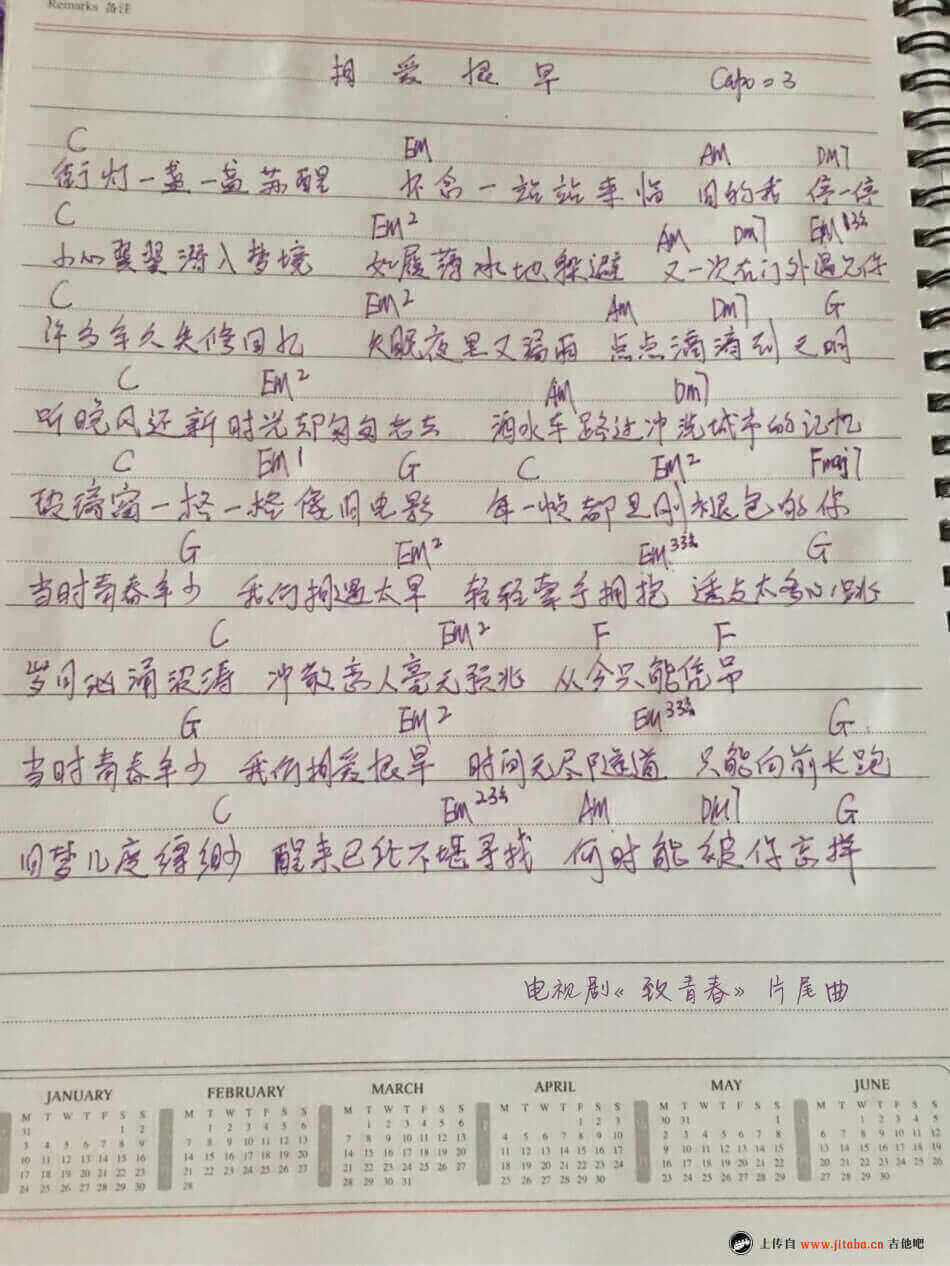 Remarks 备注
相爱很早 Capo=3
C Em Am Dm7
街灯一盏一盏苏醒 怀念一站站来临 旧的我 停一停
C Em2 Am Dm7 Em134
小心翼翼潜入梦境 如履薄冰地躲避 又一次在门外遇见你
C Em2 Am Dm7 G
许多年久失修回忆 失眠夜里又漏雨 点点滴滴到天明
C Em2 Am Dm7
听晚风还新时光却匆匆老去 洒水车路过冲洗城市的记忆
C Em1 G C Em2 Fmaj7
玻璃窗一格一格像旧电影 每一帧都是刚褪色的你
G Em2 Em334 G
当时青春年少 我们相遇太早 轻轻牵手拥抱 透点太多心跳
C Em2 F F
岁月汹涌波涛 冲散恋人毫无预兆 从今只能凭吊
G Em2 Em334 G
当时青春年少 我们相爱很早 时间无尽隧道 只能向前长跑
C Em234 Am Dm7 G
旧梦几度缥缈 醒来已化不堪寻找 何时能被你忘掉
电视剧《致青春》片尾曲
JANUARY FEBRUARY MARCH APRIL MAY JUNE
M T W T F S S M T W T F S S M T W T F S S M T W T F S S M T W T F S S M T W T F S S
31 1 2 1 2 3 4 5 6 1 2 3 4 5 6 1 2 3 30 31 1 1 2 3 4 5
3 4 5 6 7 8 9 7 8 9 10 11 12 13 7 8 9 10 11 12 13 4 5 6 7 8 9 10 2 3 4 5 6 7 8 6 7 8 9 10 11 12
10 11 12 13 14 15 16 14 15 16 17 18 19 20 14 15 16 17 18 19 20 11 12 13 14 15 16 17 9 10 11 12 13 14 15 13 14 15 16 17 18 19
17 18 19 20 21 22 23 21 22 23 24 25 26 27 21 22 23 24 25 26 27 18 19 20 21 22 23 24 16 17 18 19 20 21 22 20 21 22 23 24 25 26
24 25 26 27 28 29 30 28 28 29 30 31 25 26 27 28 29 30 23 24 25 26 27 28 29 27 28 29 30
上传自 www.jitaba.cn 吉他吧